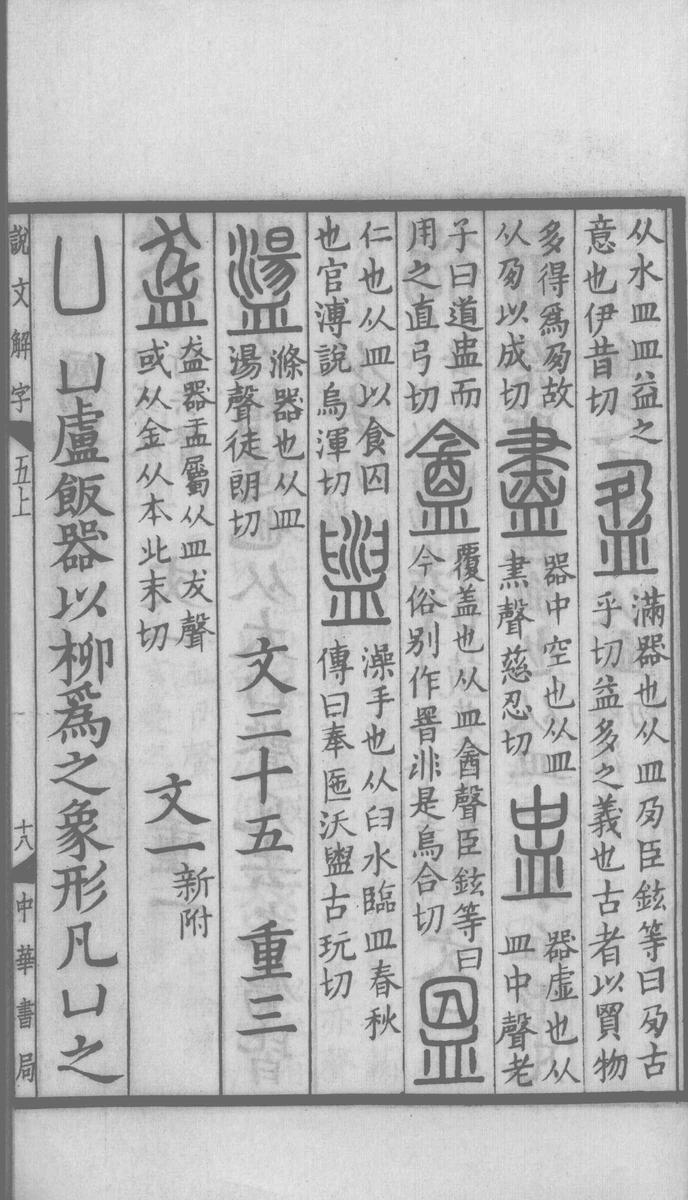 从水皿皿益之
意也伊昔切
盈
滿器也从皿夃臣鉉等曰夃古
乎切益多之義也古者以買物
多得爲夃故
从夃以成切
盡
器中空也从皿
㶳聲慈忍切
盅
器虛也从
皿中聲老
子曰道盅而
用之直弓切
盦
覆盖也从皿酓聲臣鉉等曰
今俗别作罯非是烏合切
𥁕
仁也从皿以食囚
也官溥說烏渾切
盥
澡手也从臼水臨皿春秋
傳曰奉匜沃盥古玩切
盪
滌器也从皿
湯聲徒朗切
文二十五 重三
盋
盋器盂屬从皿犮聲
或从金从本北末切
文一
新附
凵 凵盧飯器以柳爲之象形凡凵之
說文解字 五上 十八 中華書局